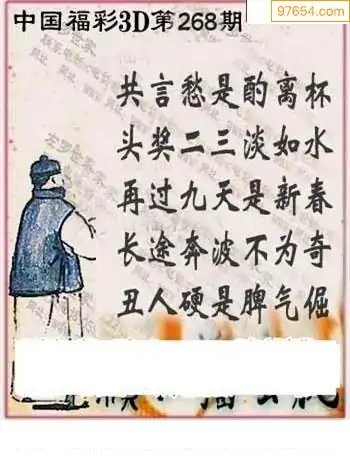 97654.com
中国福彩3D第268期
共言愁是酌离杯
头奖二三淡如水
再过九天是新春
长途奔波不为奇
丑人硬是脾气倔